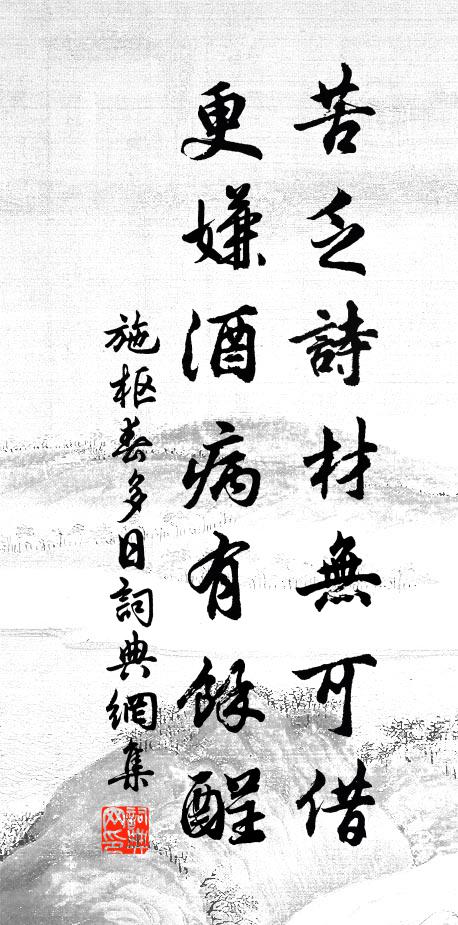 苦乏詩材無可借
更嫌酒病有餘酲
施枢春多日詞典網集